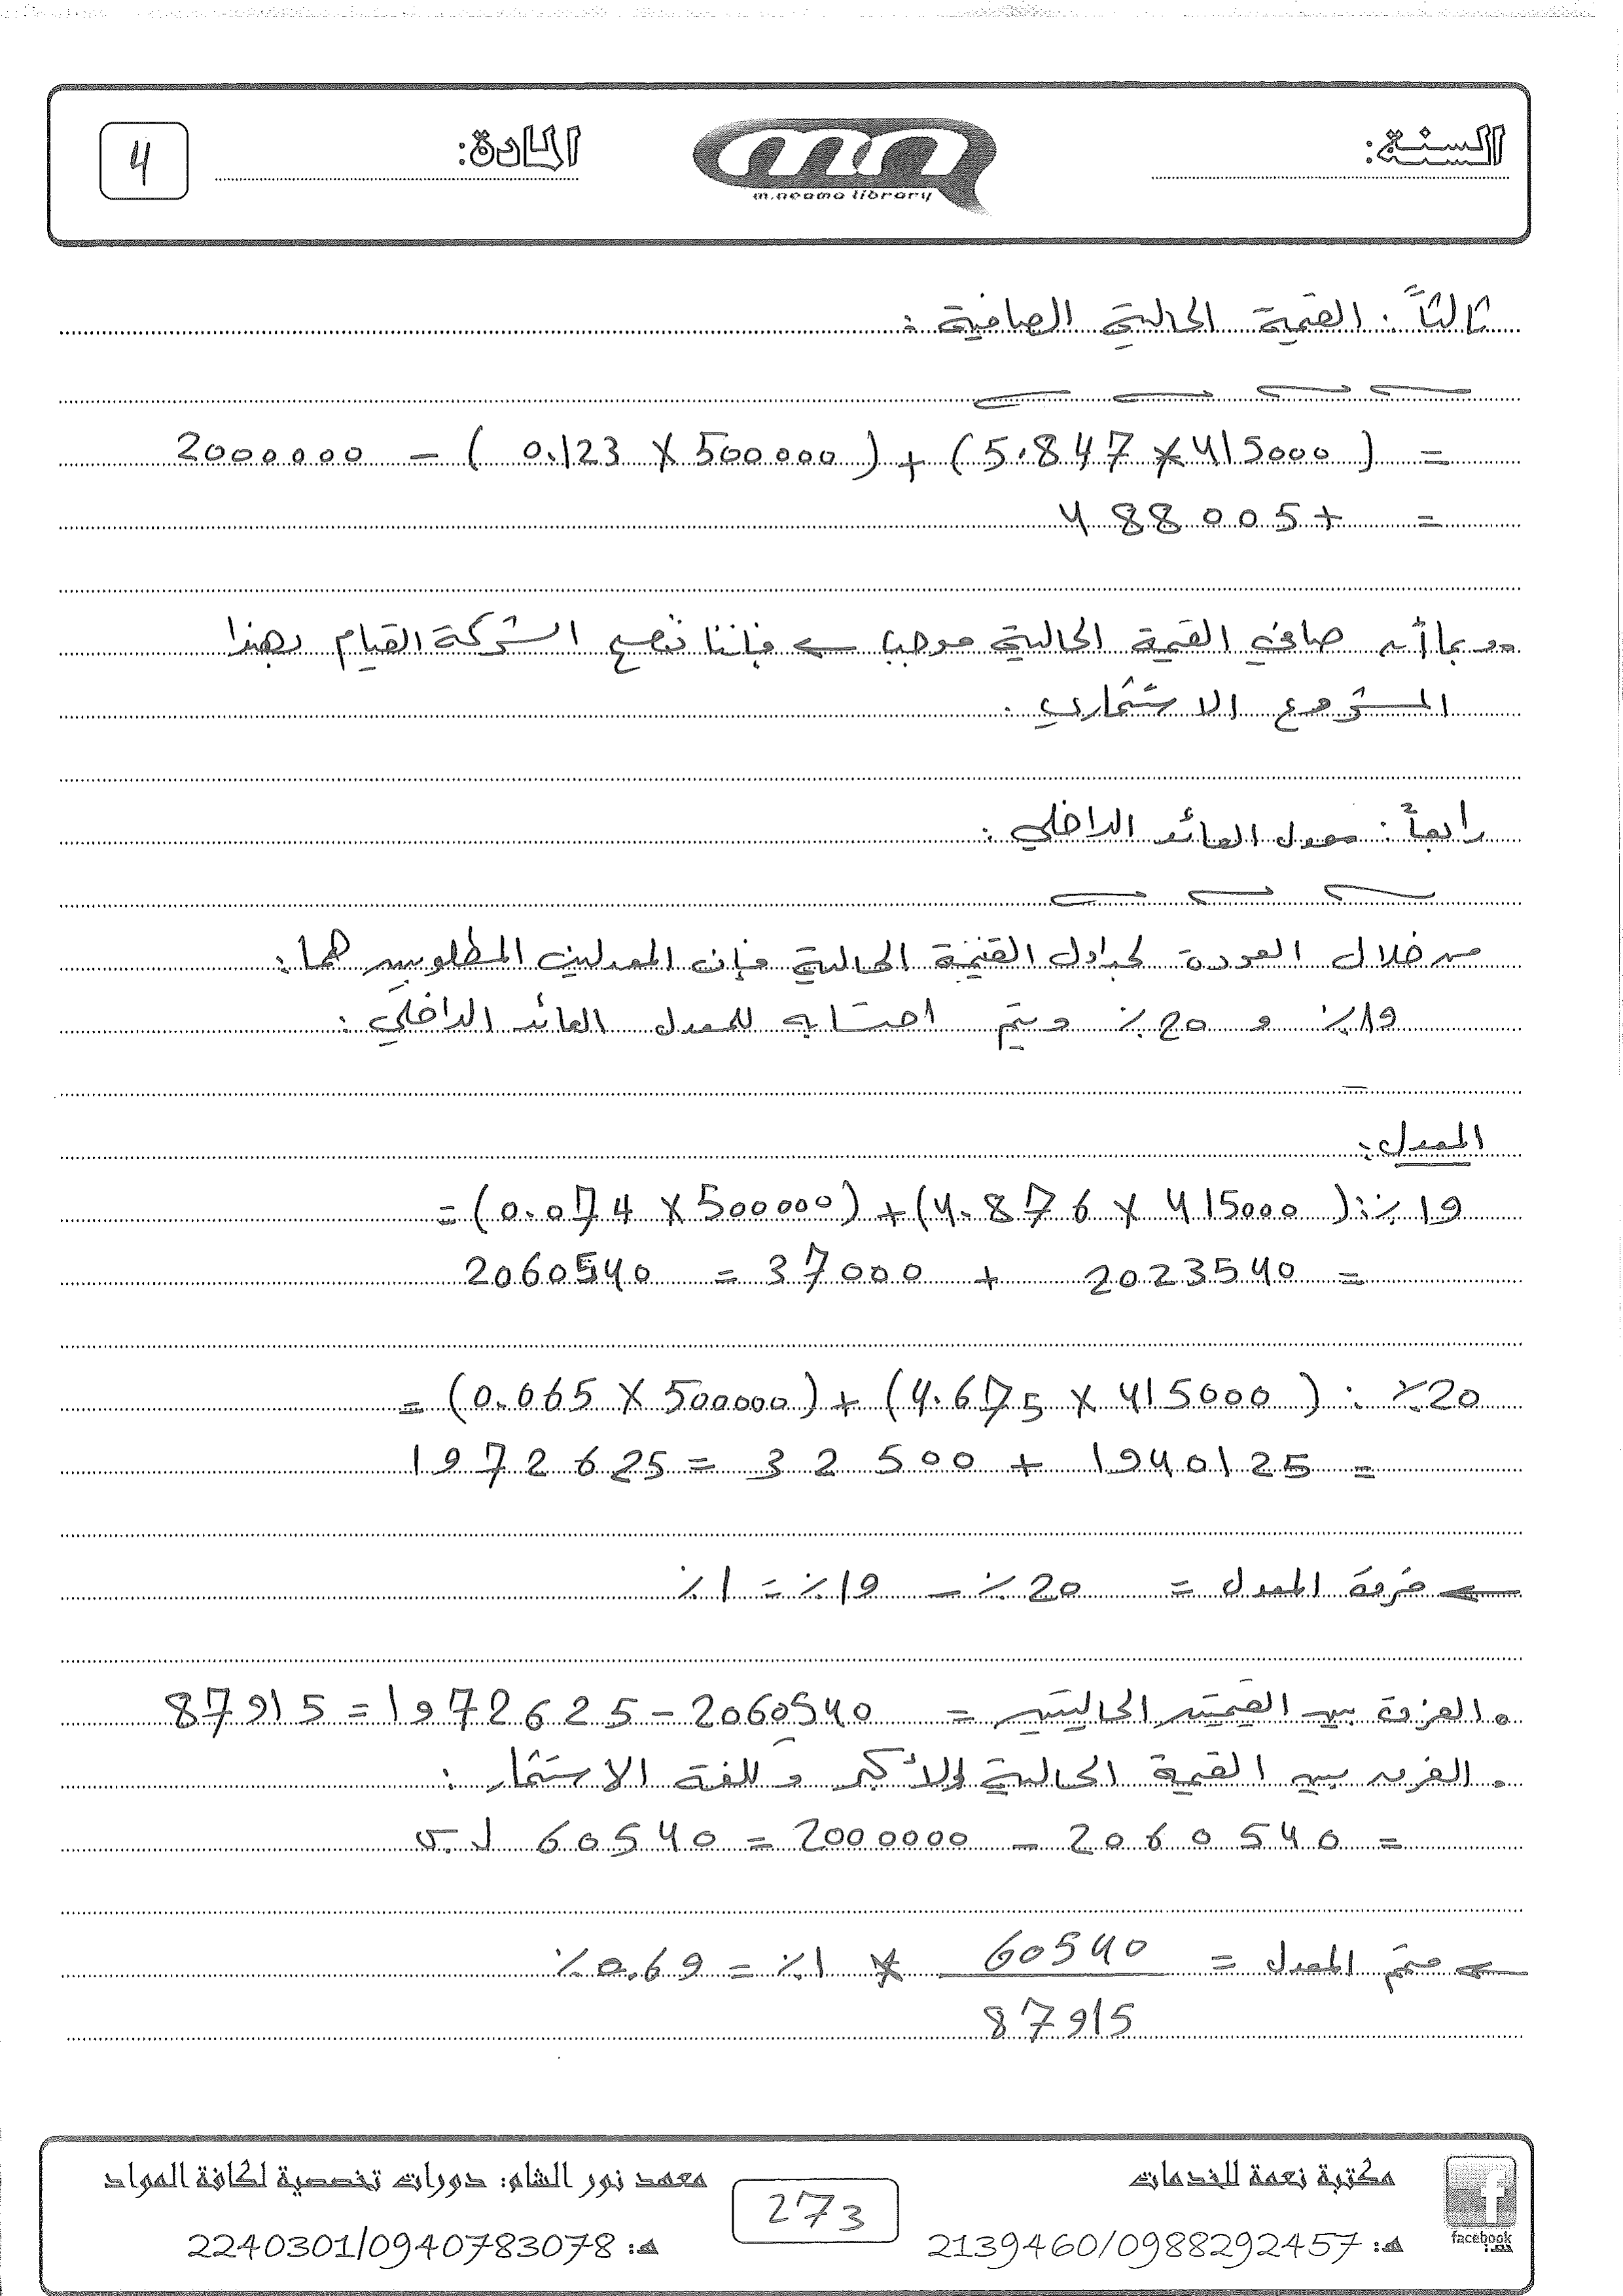 السنة:
m.neama library
المادة:
4
ثالثاً: القيمة الحالية الصافية:
= (5.847 × 415000) + (0.123 × 500000) - 2000000
= +488005
وبما أن صافي القيمة الحالية موجب ← فإننا ننصح الشركة القيام بهذا
المشروع الاستثماري.
رابعاً: معدل العائد الداخلي:
من خلال العودة لجداول القيمة الحالية فإن المعدلين المطلوبين هما:
19٪ و 20٪ ويتم احتسابه للمعدل العائد الداخلي:
المعدل:
19٪: (4.876 × 415000) + (0.074 × 500000) =
= 2023540 + 37000 = 2060540
20٪: (4.675 × 415000) + (0.065 × 500000) =
= 1940125 + 32500 = 1972625
← فرق المعدل = 20٪ - 19٪ = 1٪
• الفرق بين القيمتين الحاليتين = 2060540 - 1972625 = 87915
• الفرق بين القيمة الحالية الأكبر وكلفة الاستثمار:
= 2060540 - 2000000 = 60540 ل.س
← متمم المعدل = 60540 / 87915 * 1٪ = 0.69٪
مكتبة نعمة للخدمات
هـ: 2139460/0988292457
273
معهد نور الشام: دورات تخصصية لكافة المواد
هـ: 2240301/0940783078
facebook